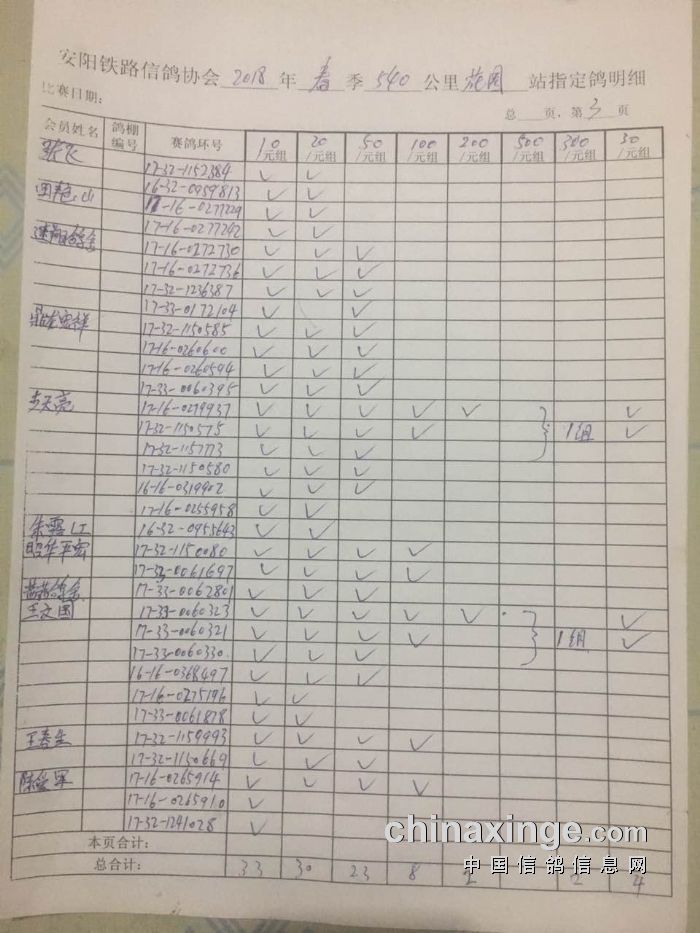 安阳铁路信鸽协会 2018 年 春 季 540 公里 花园 站指定鸽明细
比赛日期: 总 页,第 3 页
会员姓名 鸽棚编号 赛鸽环号 10/元组 20/元组 50/元组 100/元组 200/元组 500/元组 300/元组 30/元组
张飞 17-32-1152384 ✓ ✓
16-32-0959813 ✓ ✓
山 17-16-0277229 ✓ ✓
17-16-0277242 ✓ ✓
鸽舍 17-16-0272730 ✓ ✓ ✓
17-16-0272736 ✓ ✓ ✓
17-32-1236387 ✓ ✓ ✓
17-33-0172104 ✓ ✓
17-32-1150585 ✓ ✓ ✓
17-16-0260600 ✓ ✓ ✓
17-16-0260594 ✓ ✓ ✓
17-33-0060395 ✓ ✓ ✓
李天亮 17-16-0279937 ✓ ✓ ✓ ✓ ✓ ✓
17-32-1150575 ✓ ✓ ✓ ✓ 1组 ✓
17-32-1157773 ✓ ✓ ✓
17-32-1150580 ✓ ✓ ✓
16-16-0319902 ✓ ✓ ✓
17-16-0255958 ✓ ✓
朱露江 16-32-0955643 ✓ ✓
昭华平宏 17-32-1150080 ✓ ✓ ✓ ✓
17-32-0061697 ✓ ✓ ✓ ✓
鸽舍 17-33-0062801 ✓ ✓ ✓
王文国 17-33-0060323 ✓ ✓ ✓ ✓ ✓ ✓
17-33-0060321 ✓ ✓ ✓ ✓ 1组 ✓
17-33-0060330 ✓ ✓ ✓
16-16-0368497 ✓ ✓ ✓
17-16-0275196 ✓ ✓
17-33-0061878 ✓ ✓
王春生 17-32-1159993 ✓ ✓ ✓ ✓
17-32-1150669 ✓ ✓ ✓
陈军 17-16-0265914 ✓ ✓ ✓ ✓
17-16-0265910 ✓
17-32-1241028 ✓
本页合计:
总合计: 33 30 23 8 2 2 4
chinaxinge.com
中国信鸽信息网